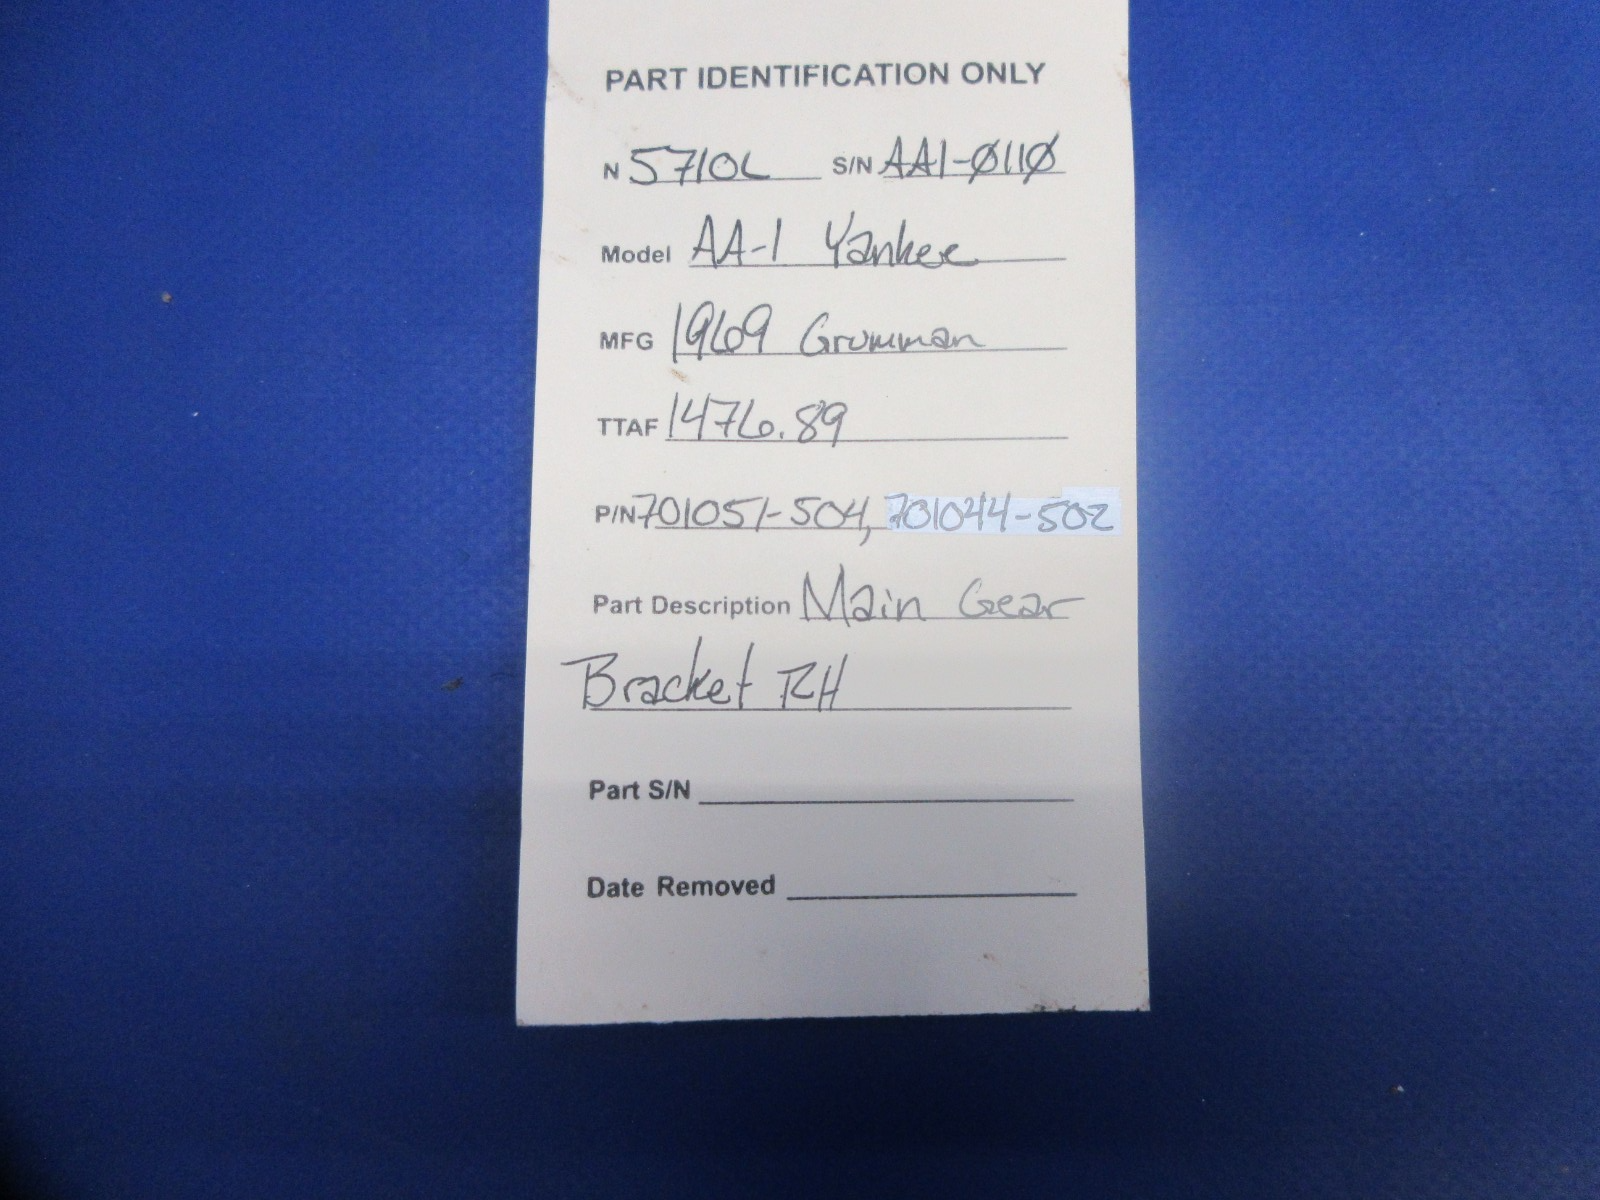 PART IDENTIFICATION ONLY
N 5710L S/N AA1-0110
Model AA-1 Yankee
MFG 1969 Grumman
TTAF 1476.89
P/N 701051-504, 701044-502
Part Description Main Gear
Bracket RH
Part S/N
Date Removed